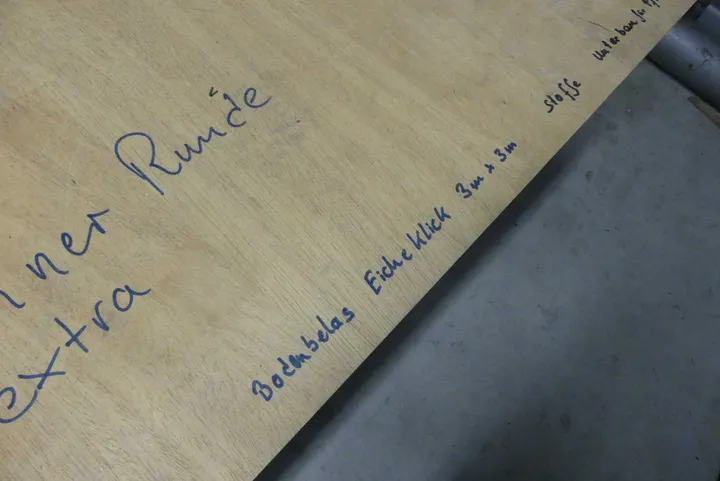 Runde
extra
Bodenbelas Eiche Klick 3m x 3m Stoffe Unterbau für